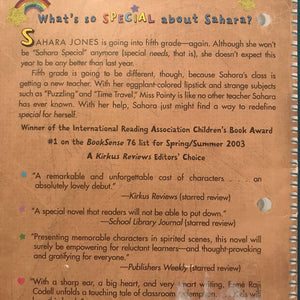 What's so SPECIAL about Sahara?
SAHARA JONES is going into fifth grade—again. Although she won't
be "Sahara Special" anymore (special needs, that is), she doesn't expect this
year to be any better than last year.
Fifth grade is going to be different, though, because Sahara's class is
getting a new teacher. With her eggplant-colored lipstick and strange subjects
such as "Puzzling" and "Time Travel," Miss Pointy is like no other teacher Sahara
has ever known. With her help, Sahara just might find a way to redefine
special for herself.
Winner of the International Reading Association Children's Book Award
#1 on the BookSense 76 list for Spring/Summer 2003
A Kirkus Reviews Editors' Choice
"A remarkable and unforgettable cast of characters . . . an
absolutely lovely debut."
—Kirkus Reviews (starred review)
"A special novel that readers will not be able to put down."
—School Library Journal (starred review)
"Presenting memorable characters in spirited scenes, this novel will
surely be empowering for reluctant learners—and thought-provoking
and gratifying for everyone."
—Publishers Weekly (starred review)
"With a sharp ear, a big heart, and very smart writing, Esmé Raji
Codell unfolds a touching tale of classroom